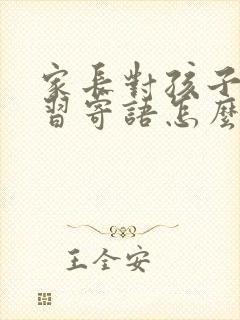 家長對孩子
習寄語怎麼
王全安